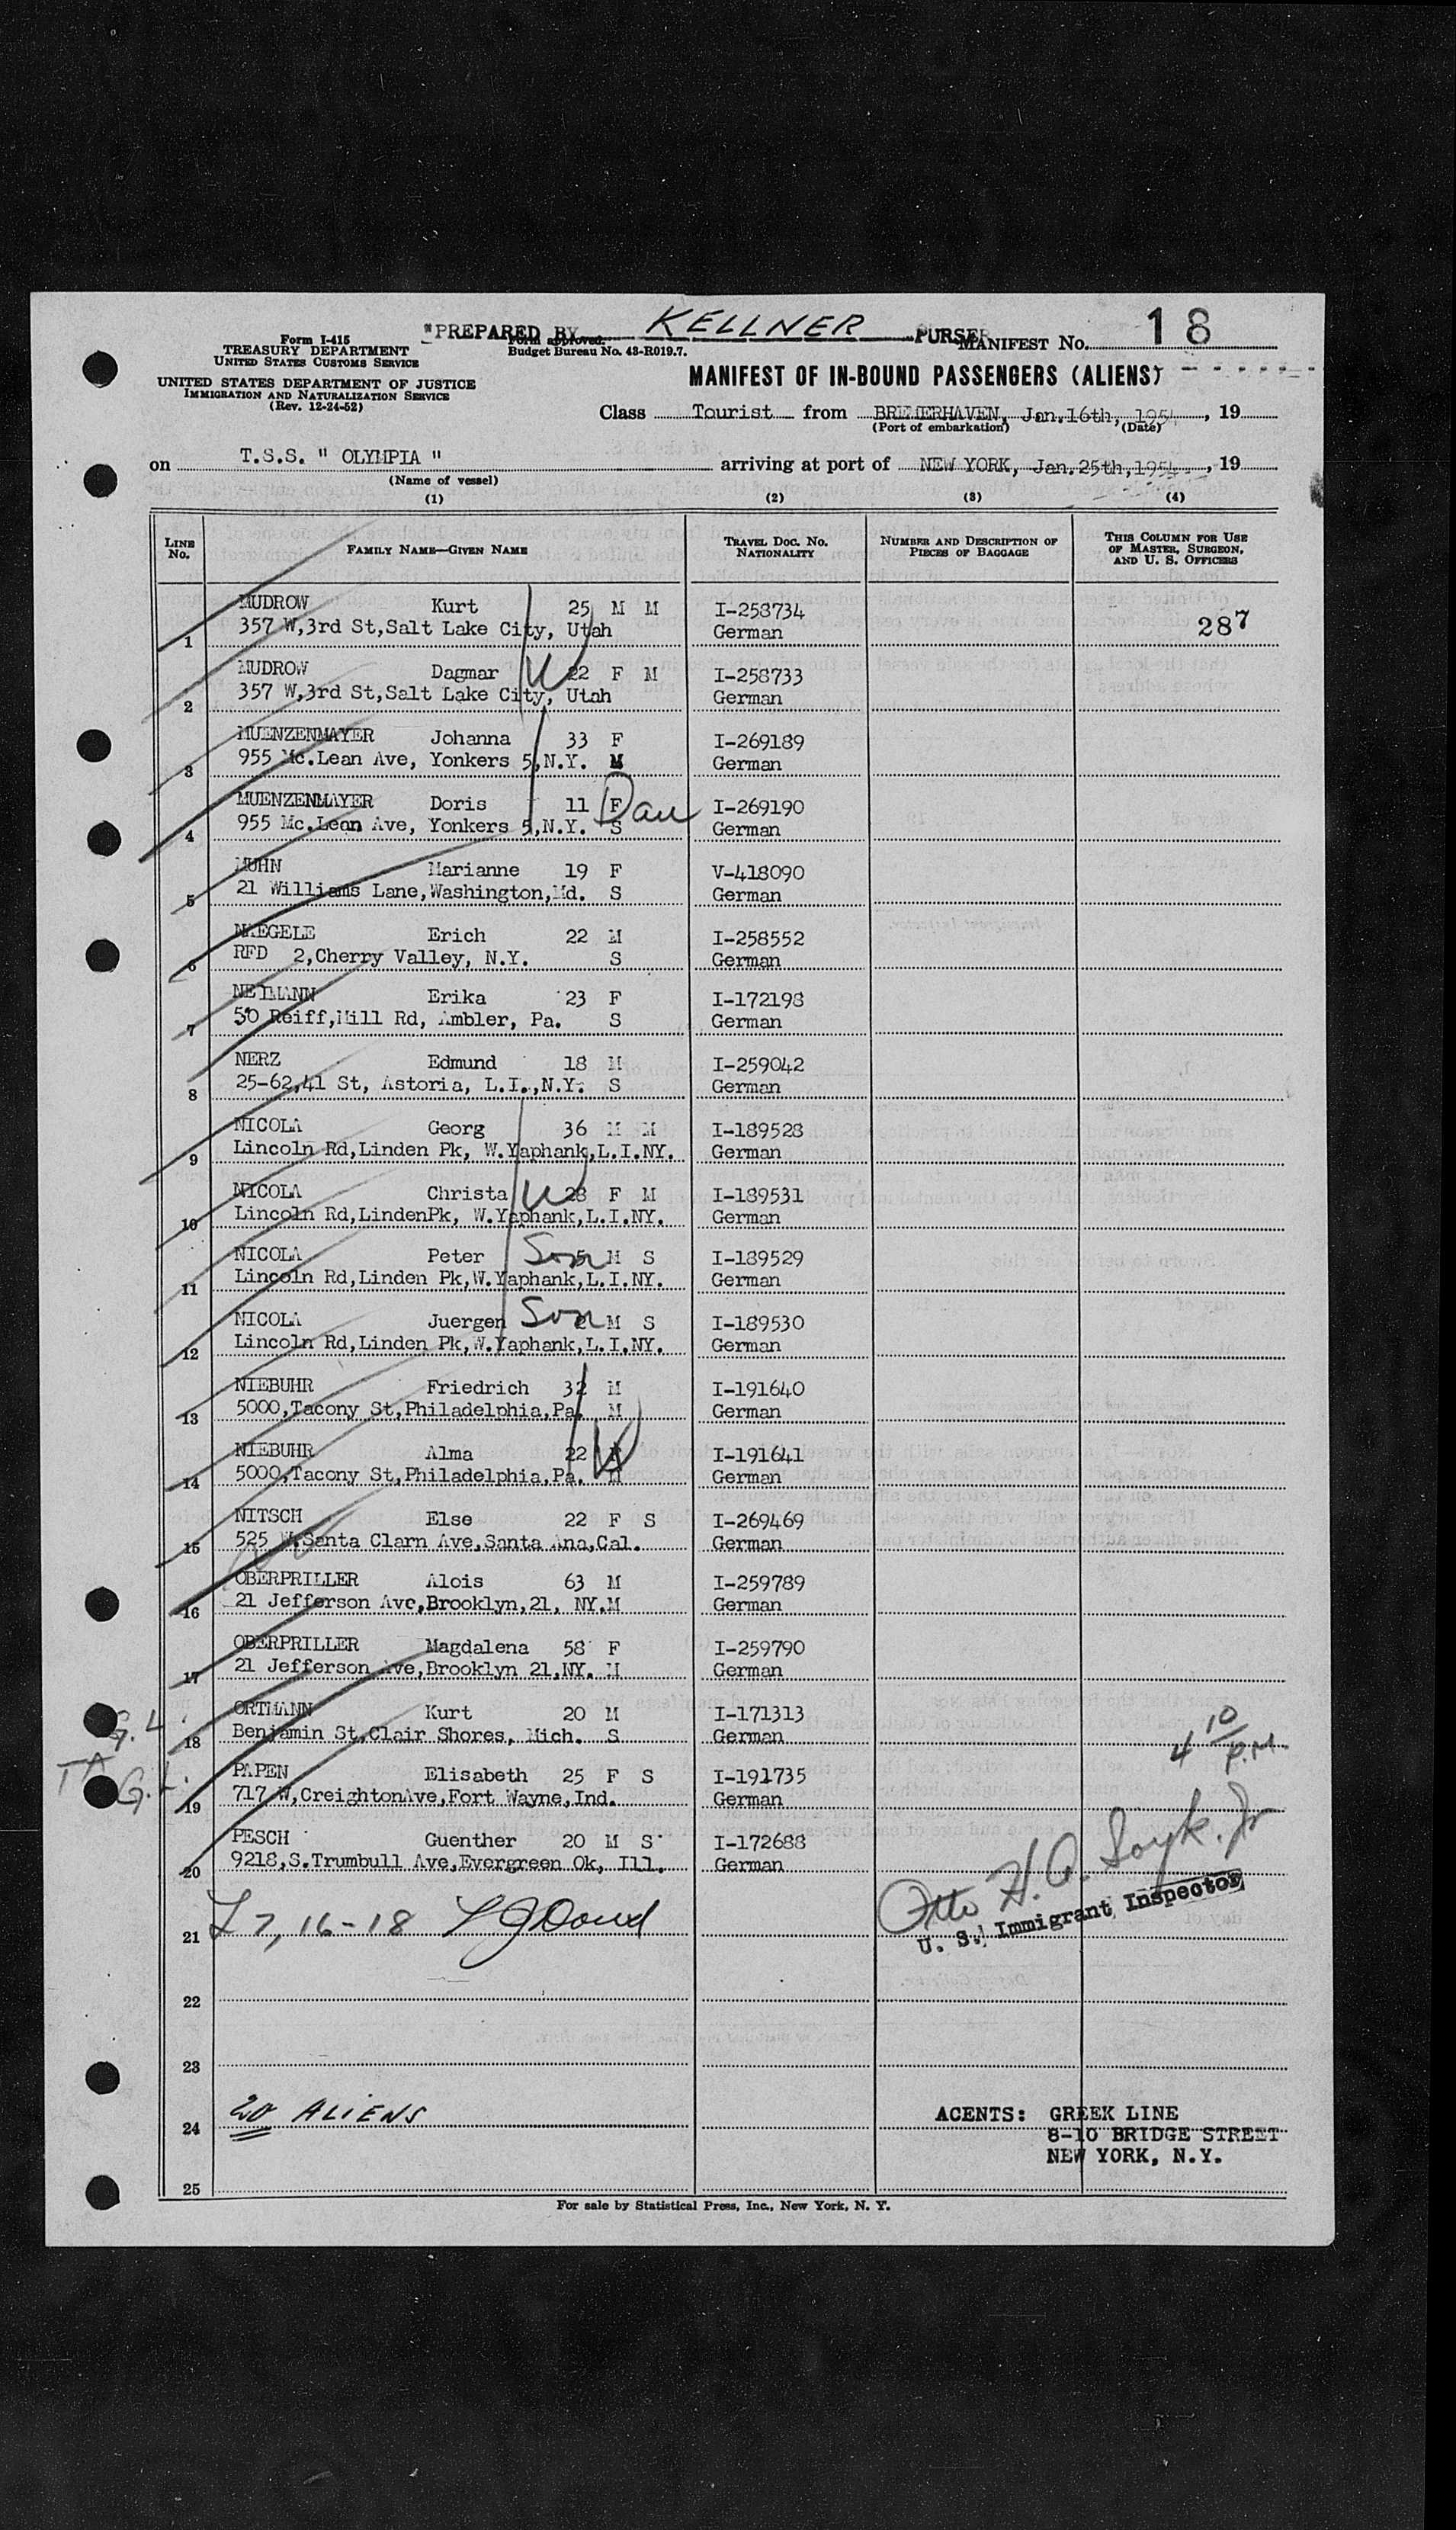 "PREPARED BY KELLNER PURSER
Form I-415
TREASURY DEPARTMENT
UNITED STATES CUSTOMS SERVICE
Form approved.
Budget Bureau No. 43-R019.7.
MANIFEST No. 18
UNITED STATES DEPARTMENT OF JUSTICE
IMMIGRATION AND NATURALIZATION SERVICE
(Rev. 12-24-52)
MANIFEST OF IN-BOUND PASSENGERS (ALIENS)
Class Tourist from BREMERHAVEN, Jan.16th, 1954, 19
(Port of embarkation) (Date)
on T.S.S. " OLYMPIA " arriving at port of NEW YORK, Jan.25th,1954, 19
(Name of vessel)
(1) (2) (3) (4)
LINE No. FAMILY NAME—GIVEN NAME TRAVEL DOC. No. NATIONALITY NUMBER AND DESCRIPTION OF PIECES OF BAGGAGE THIS COLUMN FOR USE OF MASTER, SURGEON, AND U. S. OFFICERS
MUDROW Kurt 25 M M I-258734
1 357 W,3rd St,Salt Lake City, Utah German 287
MUDROW Dagmar W 22 F M I-258733
2 357 W,3rd St,Salt Lake City, Utah German
MUENZENMAYER Johanna 33 F I-269189
3 955 Mc.Lean Ave, Yonkers 5,N.Y. M German
MUENZENMAYER Doris 11 F Dau I-269190
4 955 Mc.Lean Ave, Yonkers 5,N.Y. S German
MUHN Marianne 19 F V-418090
5 21 Williams Lane,Washington,Md. S German
NAEGELE Erich 22 M I-258552
6 RFD 2,Cherry Valley, N.Y. S German
Erika 23 F I-172198
7 50 Reiff,Mill Rd, Ambler, Pa. S German
NERZ Edmund 18 M I-259042
8 25-62,41 St, Astoria, L.I.,N.Y. S German
NICOLA Georg 36 M M I-189528
9 Lincoln Rd,Linden Pk, W.Yaphank,L.I.NY. German
NICOLA Christa W 28 F M I-189531
10 Lincoln Rd,LindenPk, W.Yaphank,L.I.NY. German
NICOLA Peter Son 5 M S I-189529
11 Lincoln Rd,Linden Pk,W.Yaphank,L.I.NY. German
NICOLA Juergen Son M S I-189530
12 Lincoln Rd,Linden Pk,W.Yaphank,L.I.NY. German
NIEBUHR Friedrich 32 M I-191640
13 5000,Tacony St,Philadelphia,Pa. M German
NIEBUHR Alma 22 F W I-191641
14 5000,Tacony St,Philadelphia,Pa. M German
NITSCH Else 22 F S I-269469
15 525 W.Santa Clarn Ave,Santa Ana,Cal. German
OBERPRILLER Alois 63 M I-259789
16 21 Jefferson Ave,Brooklyn,21, NY.M German
OBERPRILLER Magdalena 58 F I-259790
17 21 Jefferson Ave,Brooklyn 21,NY. M German
ORTMANN Kurt 20 M I-171313
G.L. 18 Benjamin St,Clair Shores, Mich. S German 4 10/P.M.
PAPEN Elisabeth 25 F S I-191735
TA G.L. 19 717 W,CreightonAve,Fort Wayne,Ind. German
PESCH Guenther 20 M S I-172688
20 9218,S.Trumbull Ave,Evergreen Ok, Ill. German
Otto H.A. Soyk. Jr
U. S. Immigrant Inspector
21 L 7, 16-18 LJDoud
22
23
24 20 ALIENS
AGENTS: GREEK LINE
8-10 BRIDGE STREET
NEW YORK, N.Y.
25
For sale by Statistical Press, Inc., New York, N. Y.